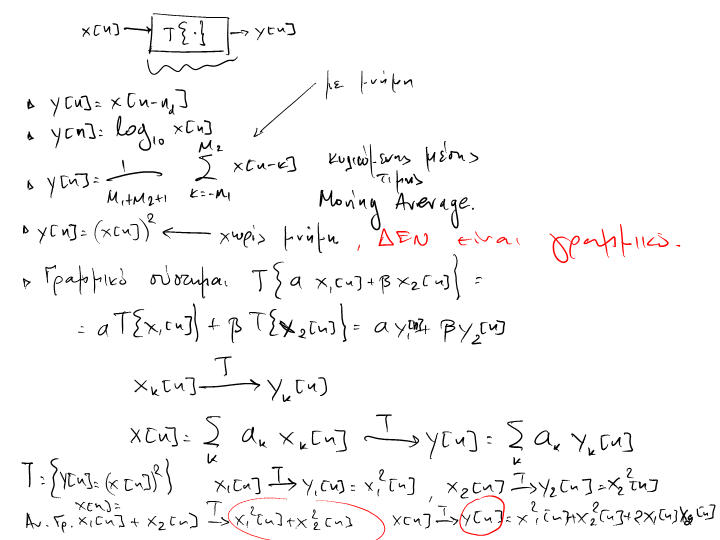 x[n] → T{·} → y[n]
με μνήμη
▹ y[n] = x[n-n_d]
▹ y[n] = log₁₀ x[n]
▹ y[n] = 1/(M₁+M₂+1) Σ_{k=-M₁}^{M₂} x[n-k] κυλιόμενης μέσης
τιμής
Moving Average.
▹ y[n] = (x[n])² ← χωρίς μνήμη, ΔΕΝ είναι γραμμικό.
▹ Γραμμικό σύστημα T{a x₁[n] + β x₂[n]} =
= a T{x₁[n]} + β T{x₂[n]} = a y₁[n] + β y₂[n]
x_k[n] —T→ y_k[n]
x[n] = Σ_k a_k x_k[n] —T→ y[n] = Σ_k a_k y_k[n]
T = {y[n] = (x[n])²} x₁[n] —T→ y₁[n] = x₁²[n], x₂[n] —T→ y₂[n] = x₂²[n]
x[n] =
Αν. Γρ. x₁[n] + x₂[n] —T→ x₁²[n] + x₂²[n] x[n] —T→ y[n] = x₁²[n] + x₂²[n] + 2x₁[n]x₂[n]